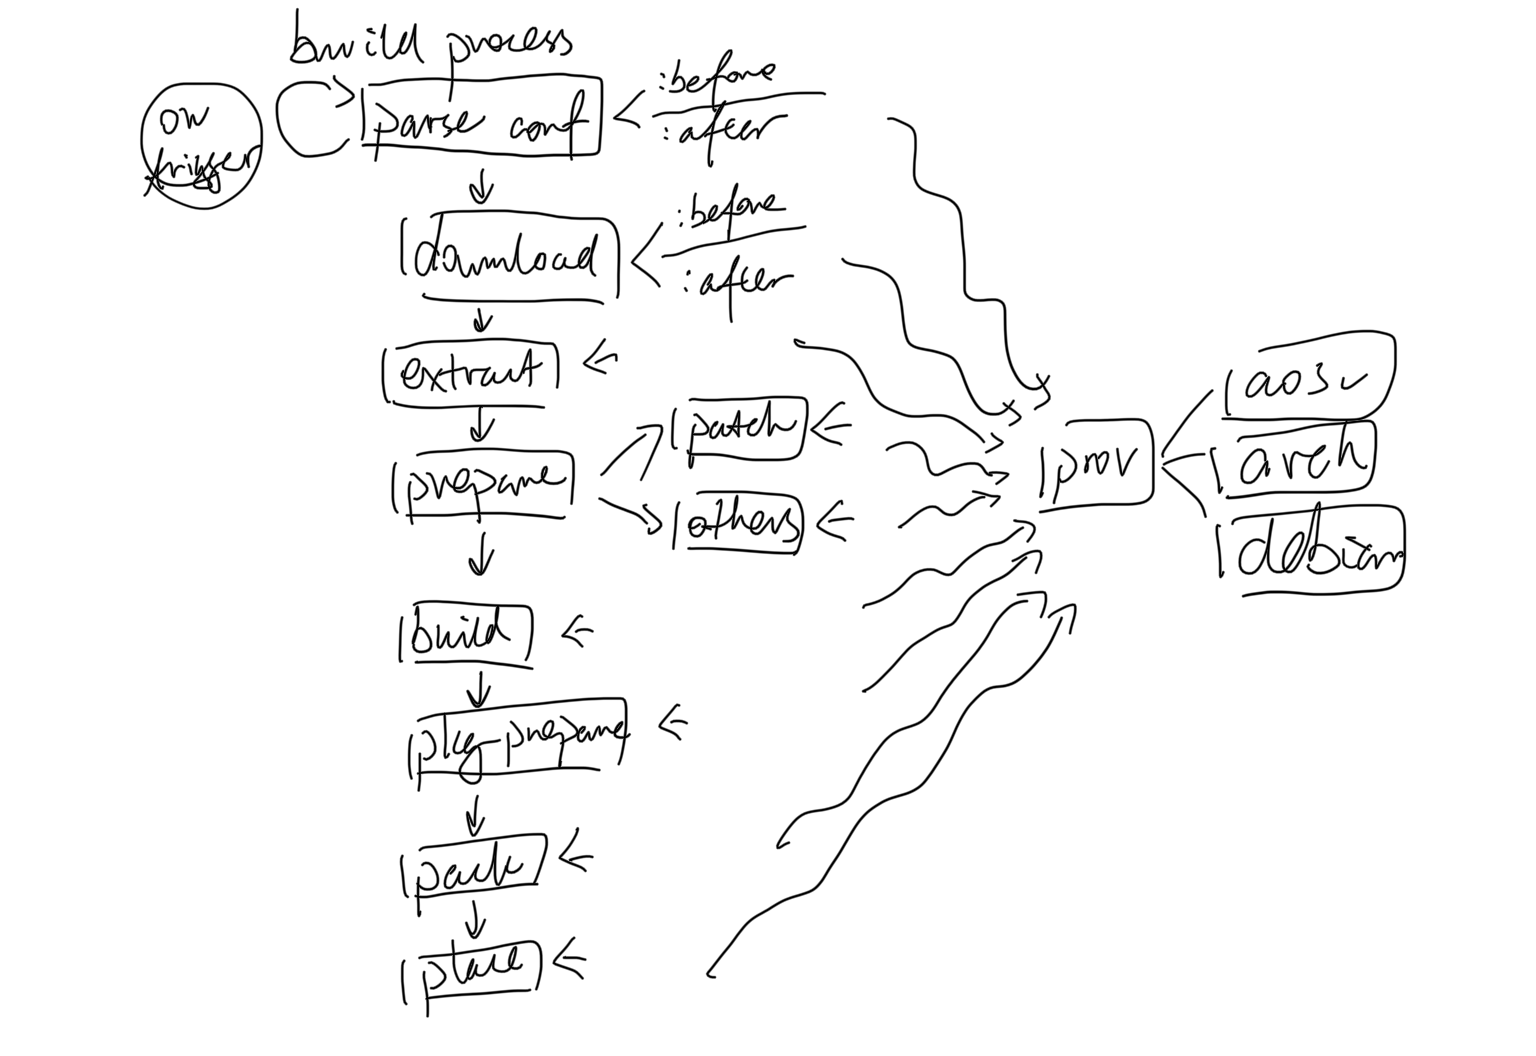 build process
on
trigger
parse conf
:before
:after
download
:before
:after
extract
prepare
patch
others
build
pkg-prepare
pack
place
prov
aosc
arch
debian